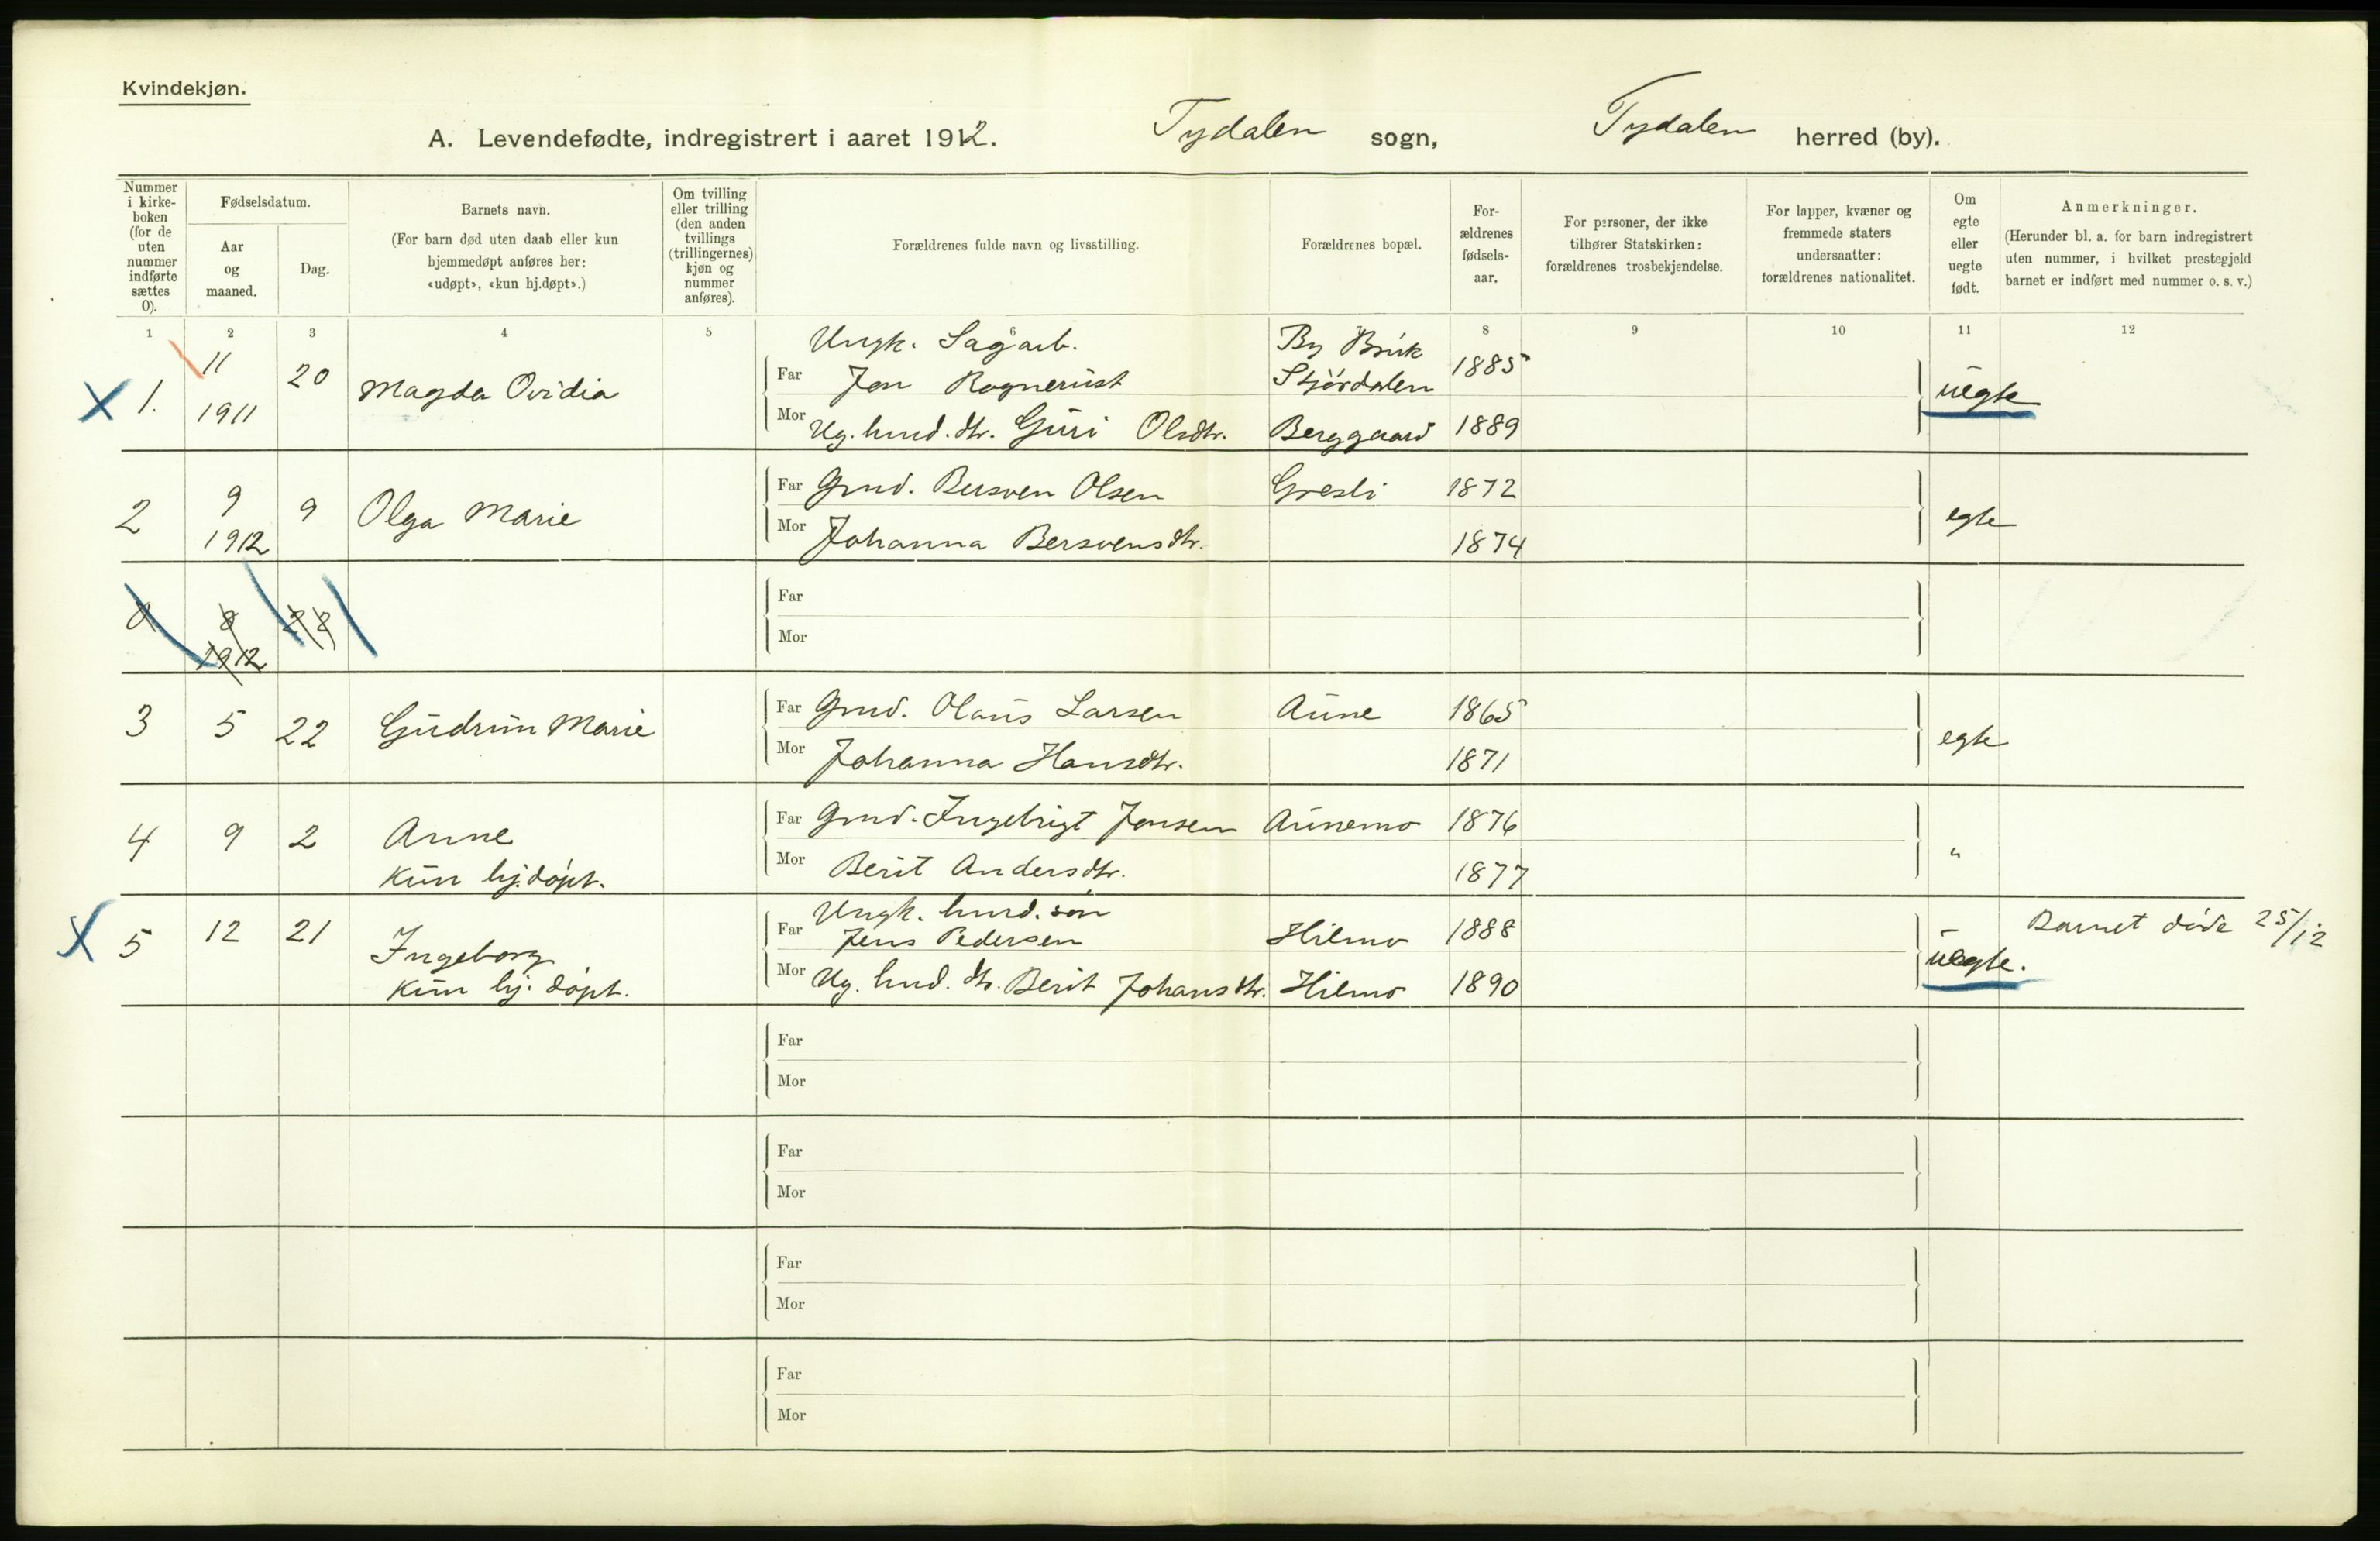 Kvindekjøn.
A. Levendefødte, indregistrert i aaret 1912. Tydalen sogn, Tydalen herred (by).
Nummer i kirke-boken (for de uten nummer indførte sættes 0).
Fødselsdatum.
Aar og maaned.
Dag.
Barnets navn.
(For barn død uten daab eller kun hjemmedøpt anføres her: «udøpt», «kun hj.døpt».)
Om tvilling eller trilling (den anden tvillings (trillingernes) kjøn og nummer anføres).
Forældrenes fulde navn og livsstilling.
Forældrenes bopæl.
For-ældrenes fødsels-aar.
For personer, der ikke tilhører Statskirken: forældrenes trosbekjendelse.
For lapper, kvæner og fremmede staters undersaatter: forældrenes nationalitet.
Om egte eller uegte født.
Anmerkninger.
(Herunder bl. a. for barn indregistrert uten nummer, i hvilket prestegjeld barnet er indført med nummer o. s. v.)
1 2 3 4 5 6 7 8 9 10 11 12
X 1. 11 1911 20 Magda Ovidia
Ungk. Sagarb.
Far Jon Rognerust
By Bruk
Stjørdalen 1885
Mor Ug. husd. dtr. Guri Olsdtr. Berggaard 1889
uegte
2 9 1912 9 Olga Marie
Far Grnd. Bersven Olsen Gresli 1872
Mor Johanna Bersvensdtr. 1874
egte
8 1912
Far
Mor
3 5 22 Gudrun Marie
Far Grnd. Olaus Larsen Aune 1865
Mor Johanna Hansdtr. 1871
egte
4 9 2 Anne
Kun hj.døpt.
Far Grnd. Ingebrigt Jensen Aunemo 1876
Mor Berit Andersdtr. 1877
"
X 5 12 21 Ingeborg
Kun hj. døpt.
Ungk. husd. søn
Far Jens Pedersen Hilmo 1888
Mor Ug. husd. dtr. Berit Johansdtr. Hilmo 1890
uegte.
Barnet døde 25/12
Far
Mor
Far
Mor
Far
Mor
Far
Mor